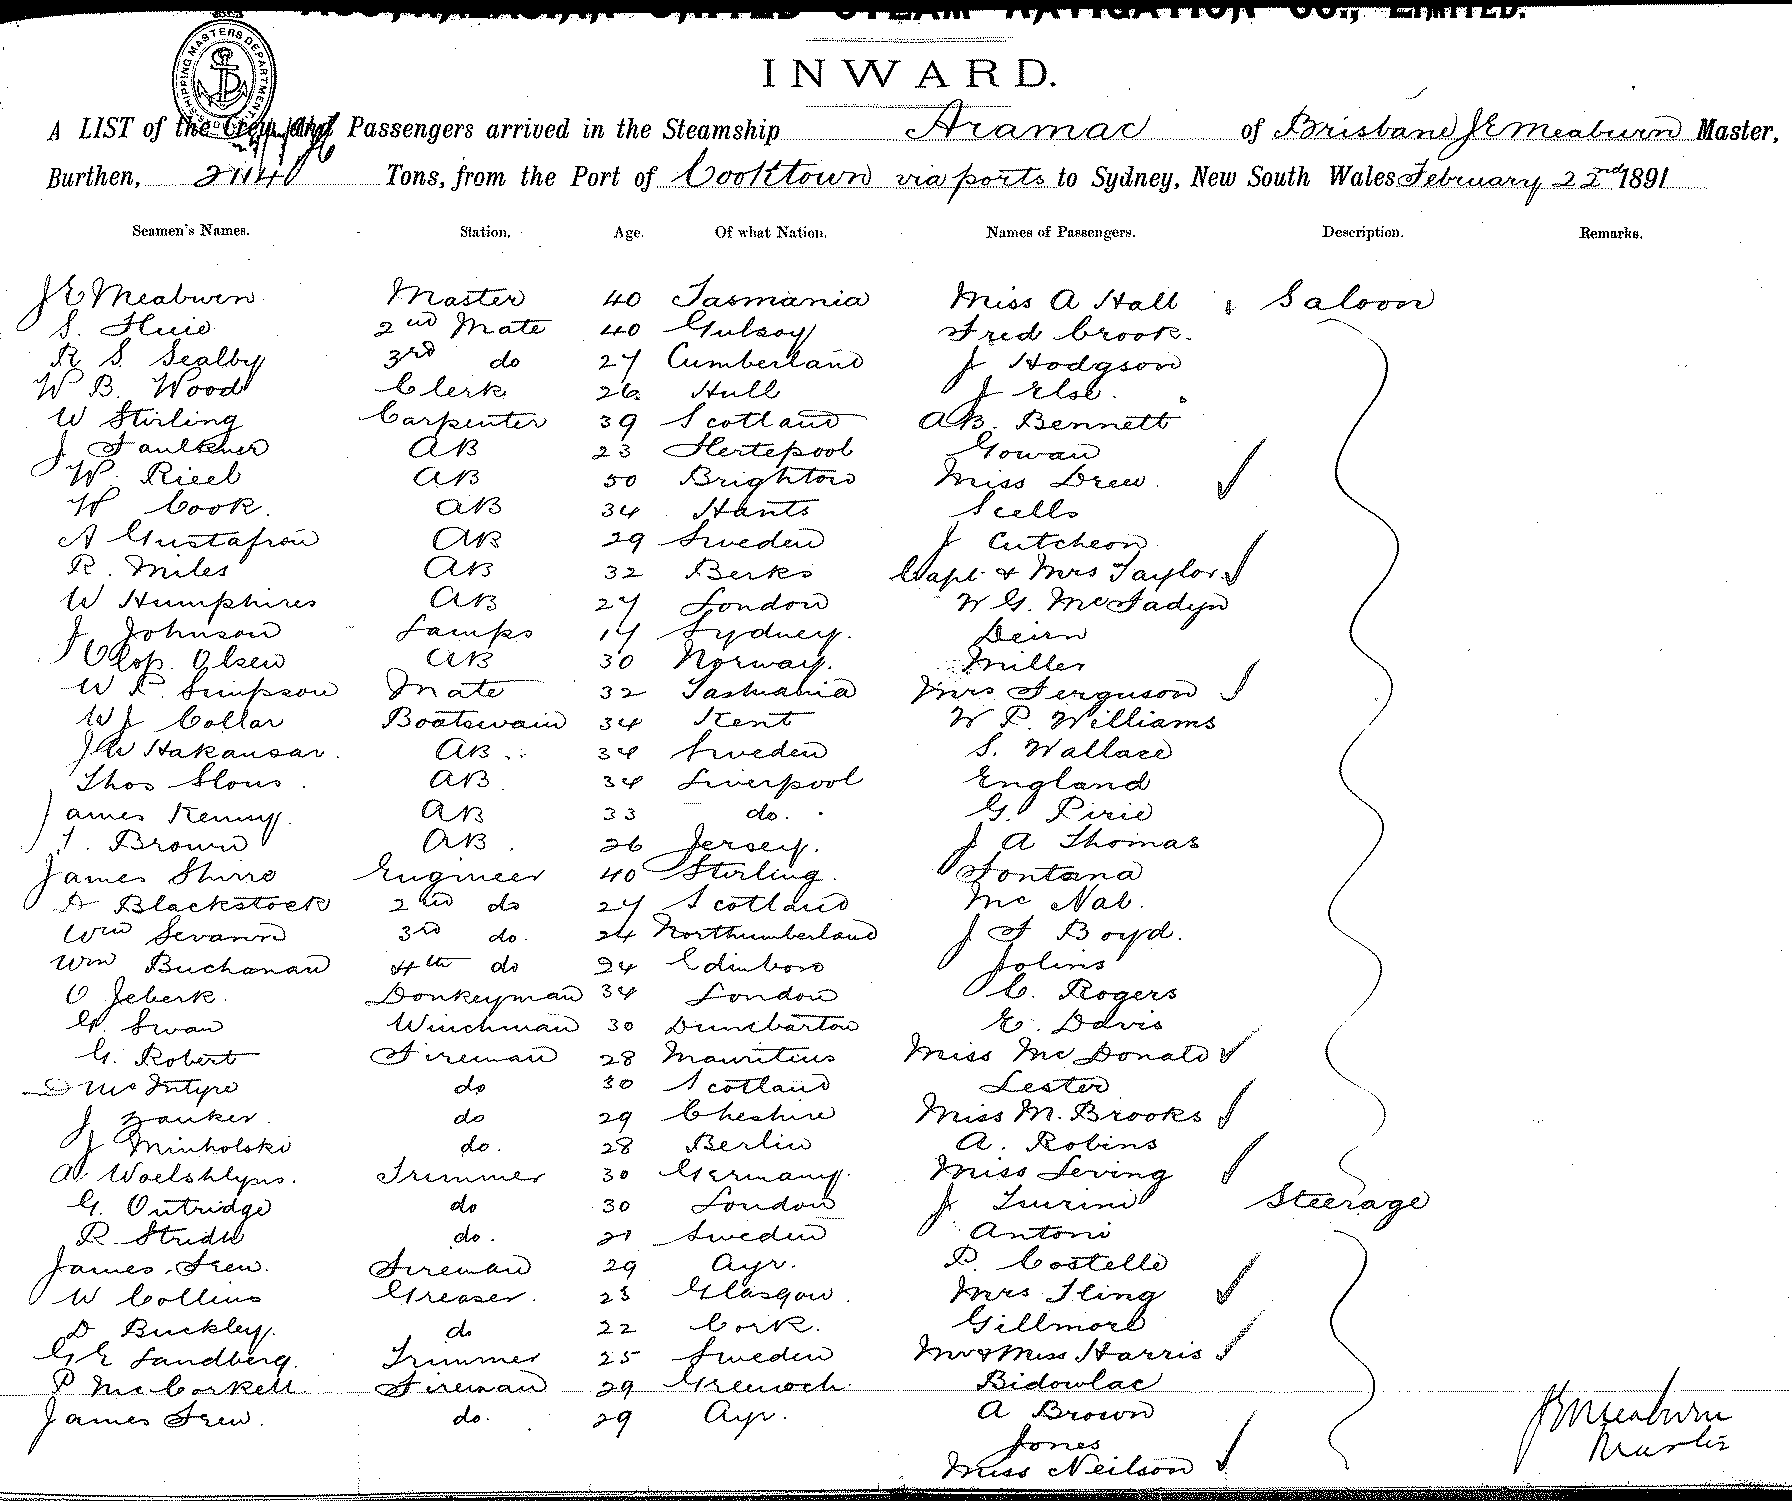 AUSTRALASIAN UNITED STEAM NAVIGATION CO., LIMITED.
SHIPPING MASTERS DEPARTMENT
INWARD.
A LIST of the Crew and Passengers arrived in the Steamship Aramac of Brisbane J E Meaburn Master,
Burthen, Tons, from the Port of Cooktown via ports to Sydney, New South Wales February 22nd 1891
Seamen's Names. Station. Age. Of what Nation. Names of Passengers. Description. Remarks.
J E Meaburn Master 40 Tasmania Miss A Hall 1 Saloon
S. Huie 2nd Mate 40 Fred Crook.
R S. Sealby 3rd do 27 Cumberland J Hodgson
W B. Wood Clerk 26 Hull J Else.
W Stirling Carpenter 39 Scotland A B. Bennett
J Faulkner AB 23 Hertepool Gowan
W. AB 50 Brighton Miss Drew.
W Cook. AB 34 Hants Scells
A Gustafson AB 29 Sweden J Cutcheon
R. Miles AB 32 Berks Capt & Mrs Taylor
W Humphires AB 27 London W G. McFadyn
J Johnson Lamps 17 Sydney. Deirn
Olsen AB 30 Norway. Miller
W P. Simpson Mate 32 Tasmania Mrs Ferguson
W J Collar Boatswain 34 Kent W P. Williams
J W Hakansar. AB 34 Sweden S. Wallace
Thos Slous. AB 34 Liverpool England
James Kenny. AB 33 do. G. Pirie
T. Brown AB. 26 Jersey. J A Thomas
James Shirre Engineer 40 Stirling. Fontana
A Blackstock 2nd do 27 Scotland Mc Nab.
Wm Sevann 3rd do. 24 Northumberland J F Boyd.
Wm Buchanan 4th do 24 Edinboro Jolins
O Jeberk. Donkeyman 34 London C. Rogers
G. Swan Winchman 30 Dumbarton E. Davis
G. Robert Fireman 28 Mauritius Miss McDonald
D McIntyre do 30 Scotland Lester
J Zanker. do 29 Cheshire Miss M. Brooks
J Minholski do. 28 Berlin A. Robins
A Woelshlyns. Trimmer 30 Germany. Miss Leving
G. Outridge do 30 London J Turini Steerage
R. Stridh do. 21 Sweden Antoni
James Frew. Fireman 29 Ayr. P. Costelle
W Collins Greaser. 23 Glasgow. Mrs Tling
D Buckley. do 22 Cork. Gillmore
G E Sandberg. Trimmer 25 Sweden Mr & Miss Harris
P McCorkell Fireman 29 Greenock Bidowlac
James Frew. do. 29 Ayr. A Brown
Jones
Miss Neilson
J E Meaburn
Master